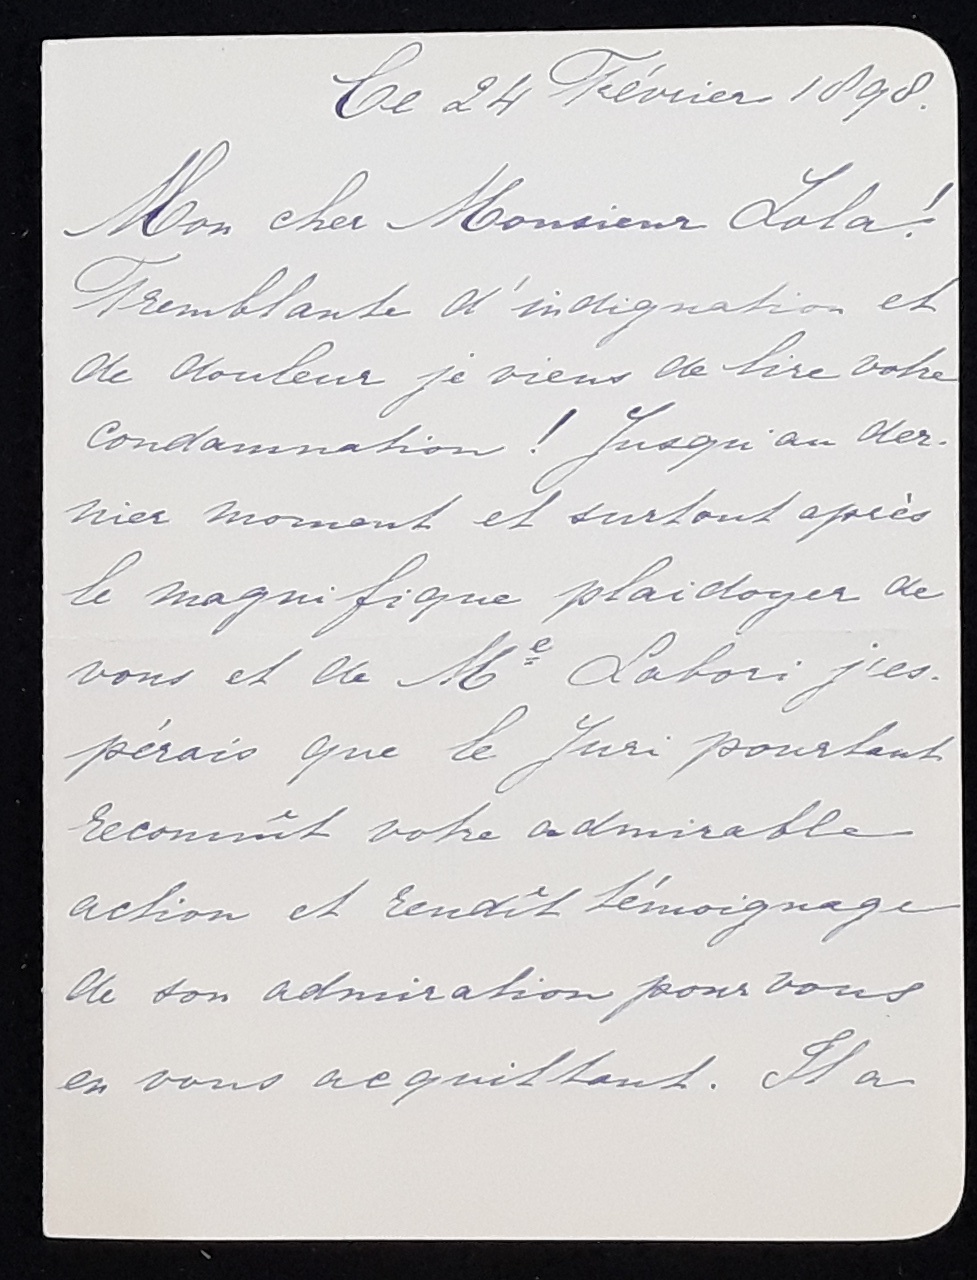 Ce 24 Février 1898.
Mon cher Monsieur Zola!
Tremblante d'indignation et
de douleur je viens de lire votre
condamnation! Jusqu'au der-
nier moment et surtout après
le magnifique plaidoyer de
vous et de Me Labori j'es-
pérais que le Juri pourtant
reconnût votre admirable
action et rendît témoignage
de son admiration pour vous
en vous acquittant. Il a